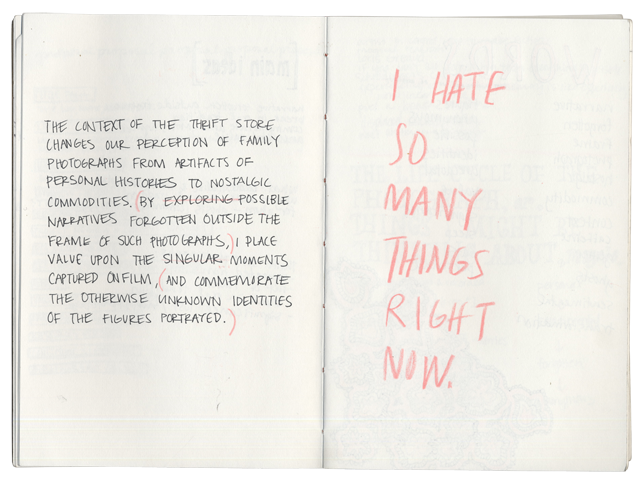 THE CONTEXT OF THE THRIFT STORE
CHANGES OUR PERCEPTION OF FAMILY
PHOTOGRAPHS FROM ARTIFACTS OF
PERSONAL HISTORIES TO NOSTALGIC
COMMODITIES. (BY EXPLORING POSSIBLE
NARRATIVES FORGOTTEN OUTSIDE THE
FRAME OF SUCH PHOTOGRAPHS,) I PLACE
VALUE UPON THE SINGULAR MOMENTS
CAPTURED ON FILM, (AND COMMEMORATE
THE OTHERWISE UNKNOWN IDENTITIES
OF THE FIGURES PORTRAYED.)
I HATE
SO
MANY
THINGS
RIGHT
NOW.